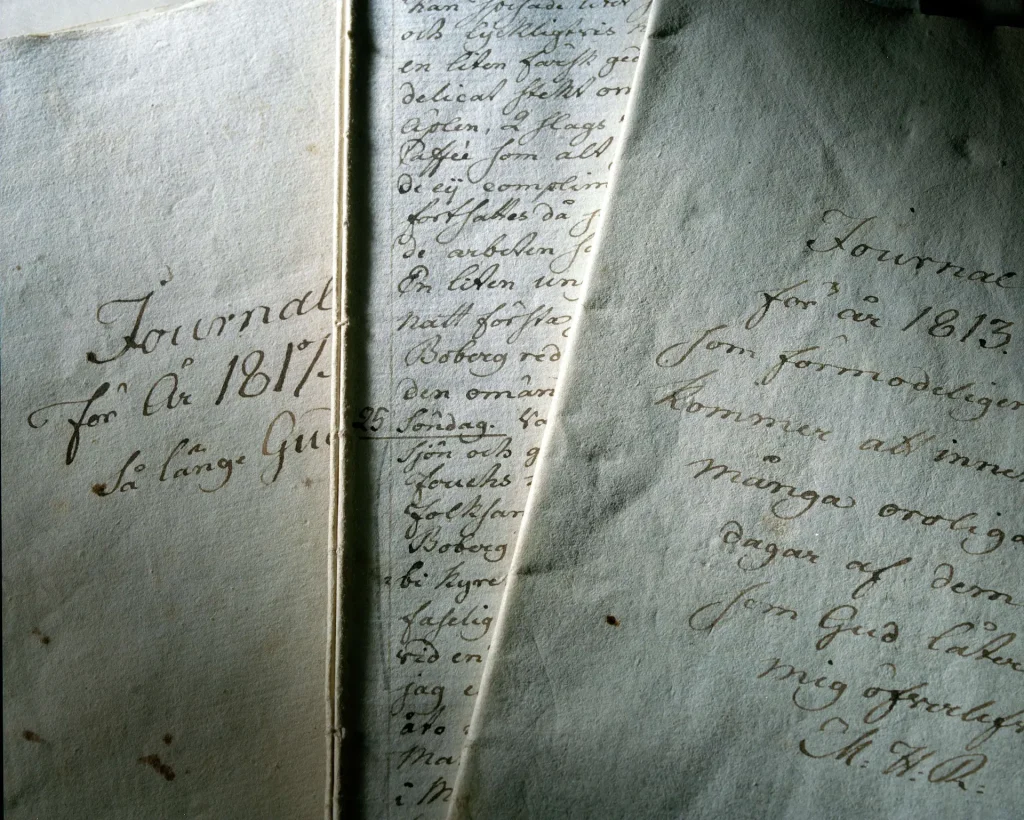 Journal
för År 1817.
så länge Gud
och lyckligtvis
en liten färsk
delicat stekt
äplen, 2 slags
Caffée som alt
de ej complim
fortsattes då
de arbeten
En liten un
natt första
Boberg red
den omän
25 Söndag. Va
sjön och g
Fouchs
folksam
Boberg
bi kyrc
faselig
vid en
jag
äro
Ma
i M
Journal
för år 1813.
som förmodeligen
kommer at inne
många oroliga
dagar af dem
som Gud låter
mig öfverlefv
M: H: R: